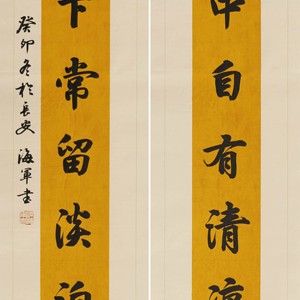 中自有清涼
下常留淡泊
癸卯冬於長安 海軍書